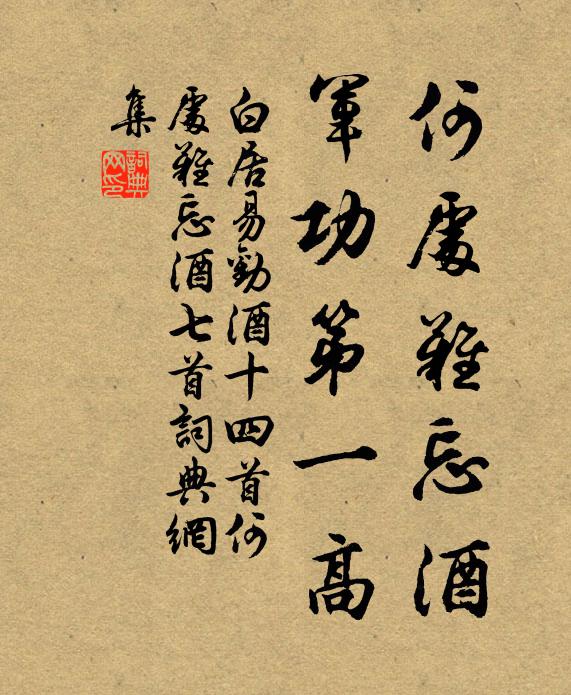 何處難忘酒
軍功第一高
白居易勸酒十四首何
處難忘酒七首詞典網
集
詞典網印